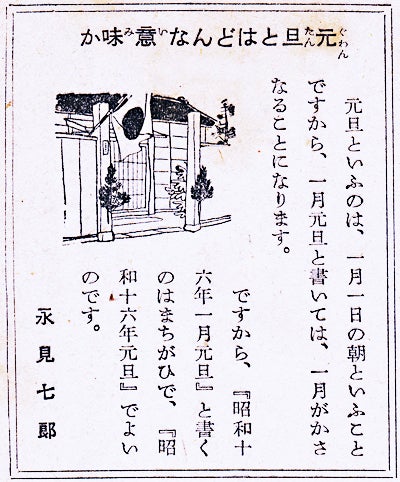 ぐわん たん い み
元旦とはどんな意味か
元旦といふのは、一月一日の朝といふこと
ですから、一月元旦と書いては、一月がかさ
なることになります。
ですから、『昭和十
六年一月元旦』と書く
のはまちがひで、『昭
和十六年元旦』でよい
のです。
永見七郎